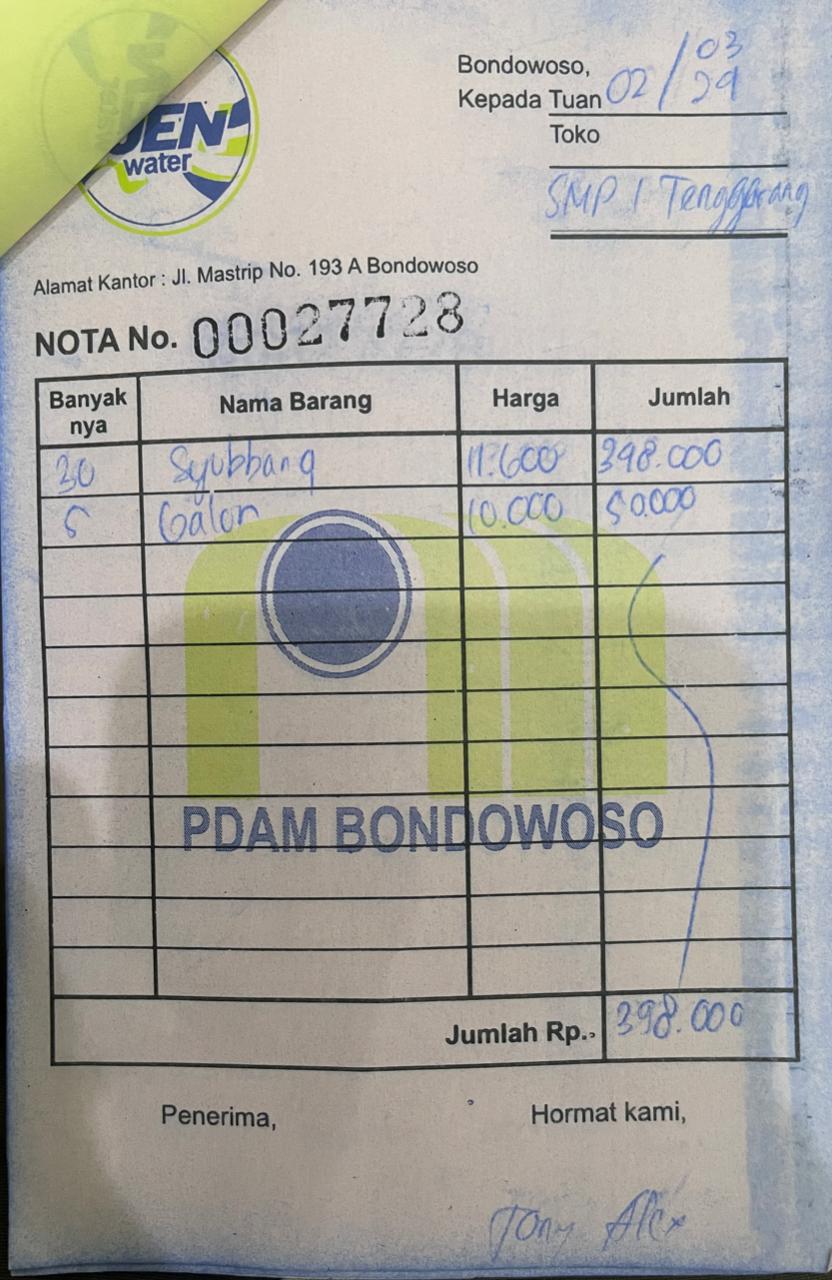 Bondowoso,
02/03/29
Kepada Tuan
Toko
SMP 1 Tenggarang
water
Alamat Kantor : Jl. Mastrip No. 193 A Bondowoso
NOTA No. 00027728
Banyak nya Nama Barang Harga Jumlah
30 Syubbang 11.600 398.000
5 Galon 10.000 50.000
PDAM BONDOWOSO
Jumlah Rp. 398.000
Penerima, Hormat kami,
Tony Alex